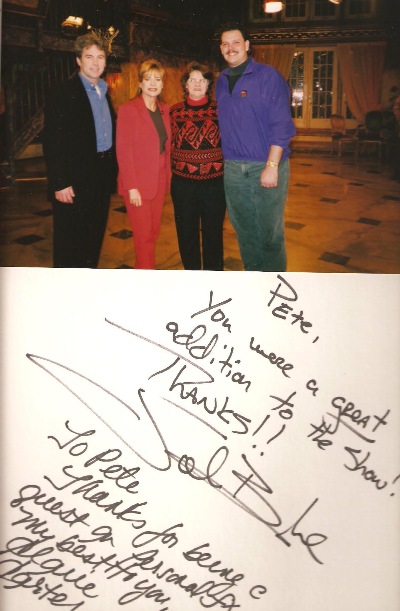 Pete,
You were a GREAT
addition to the show!
THANKS!!
To Pete
Thanks for being a
guest on Personally
my best to you,